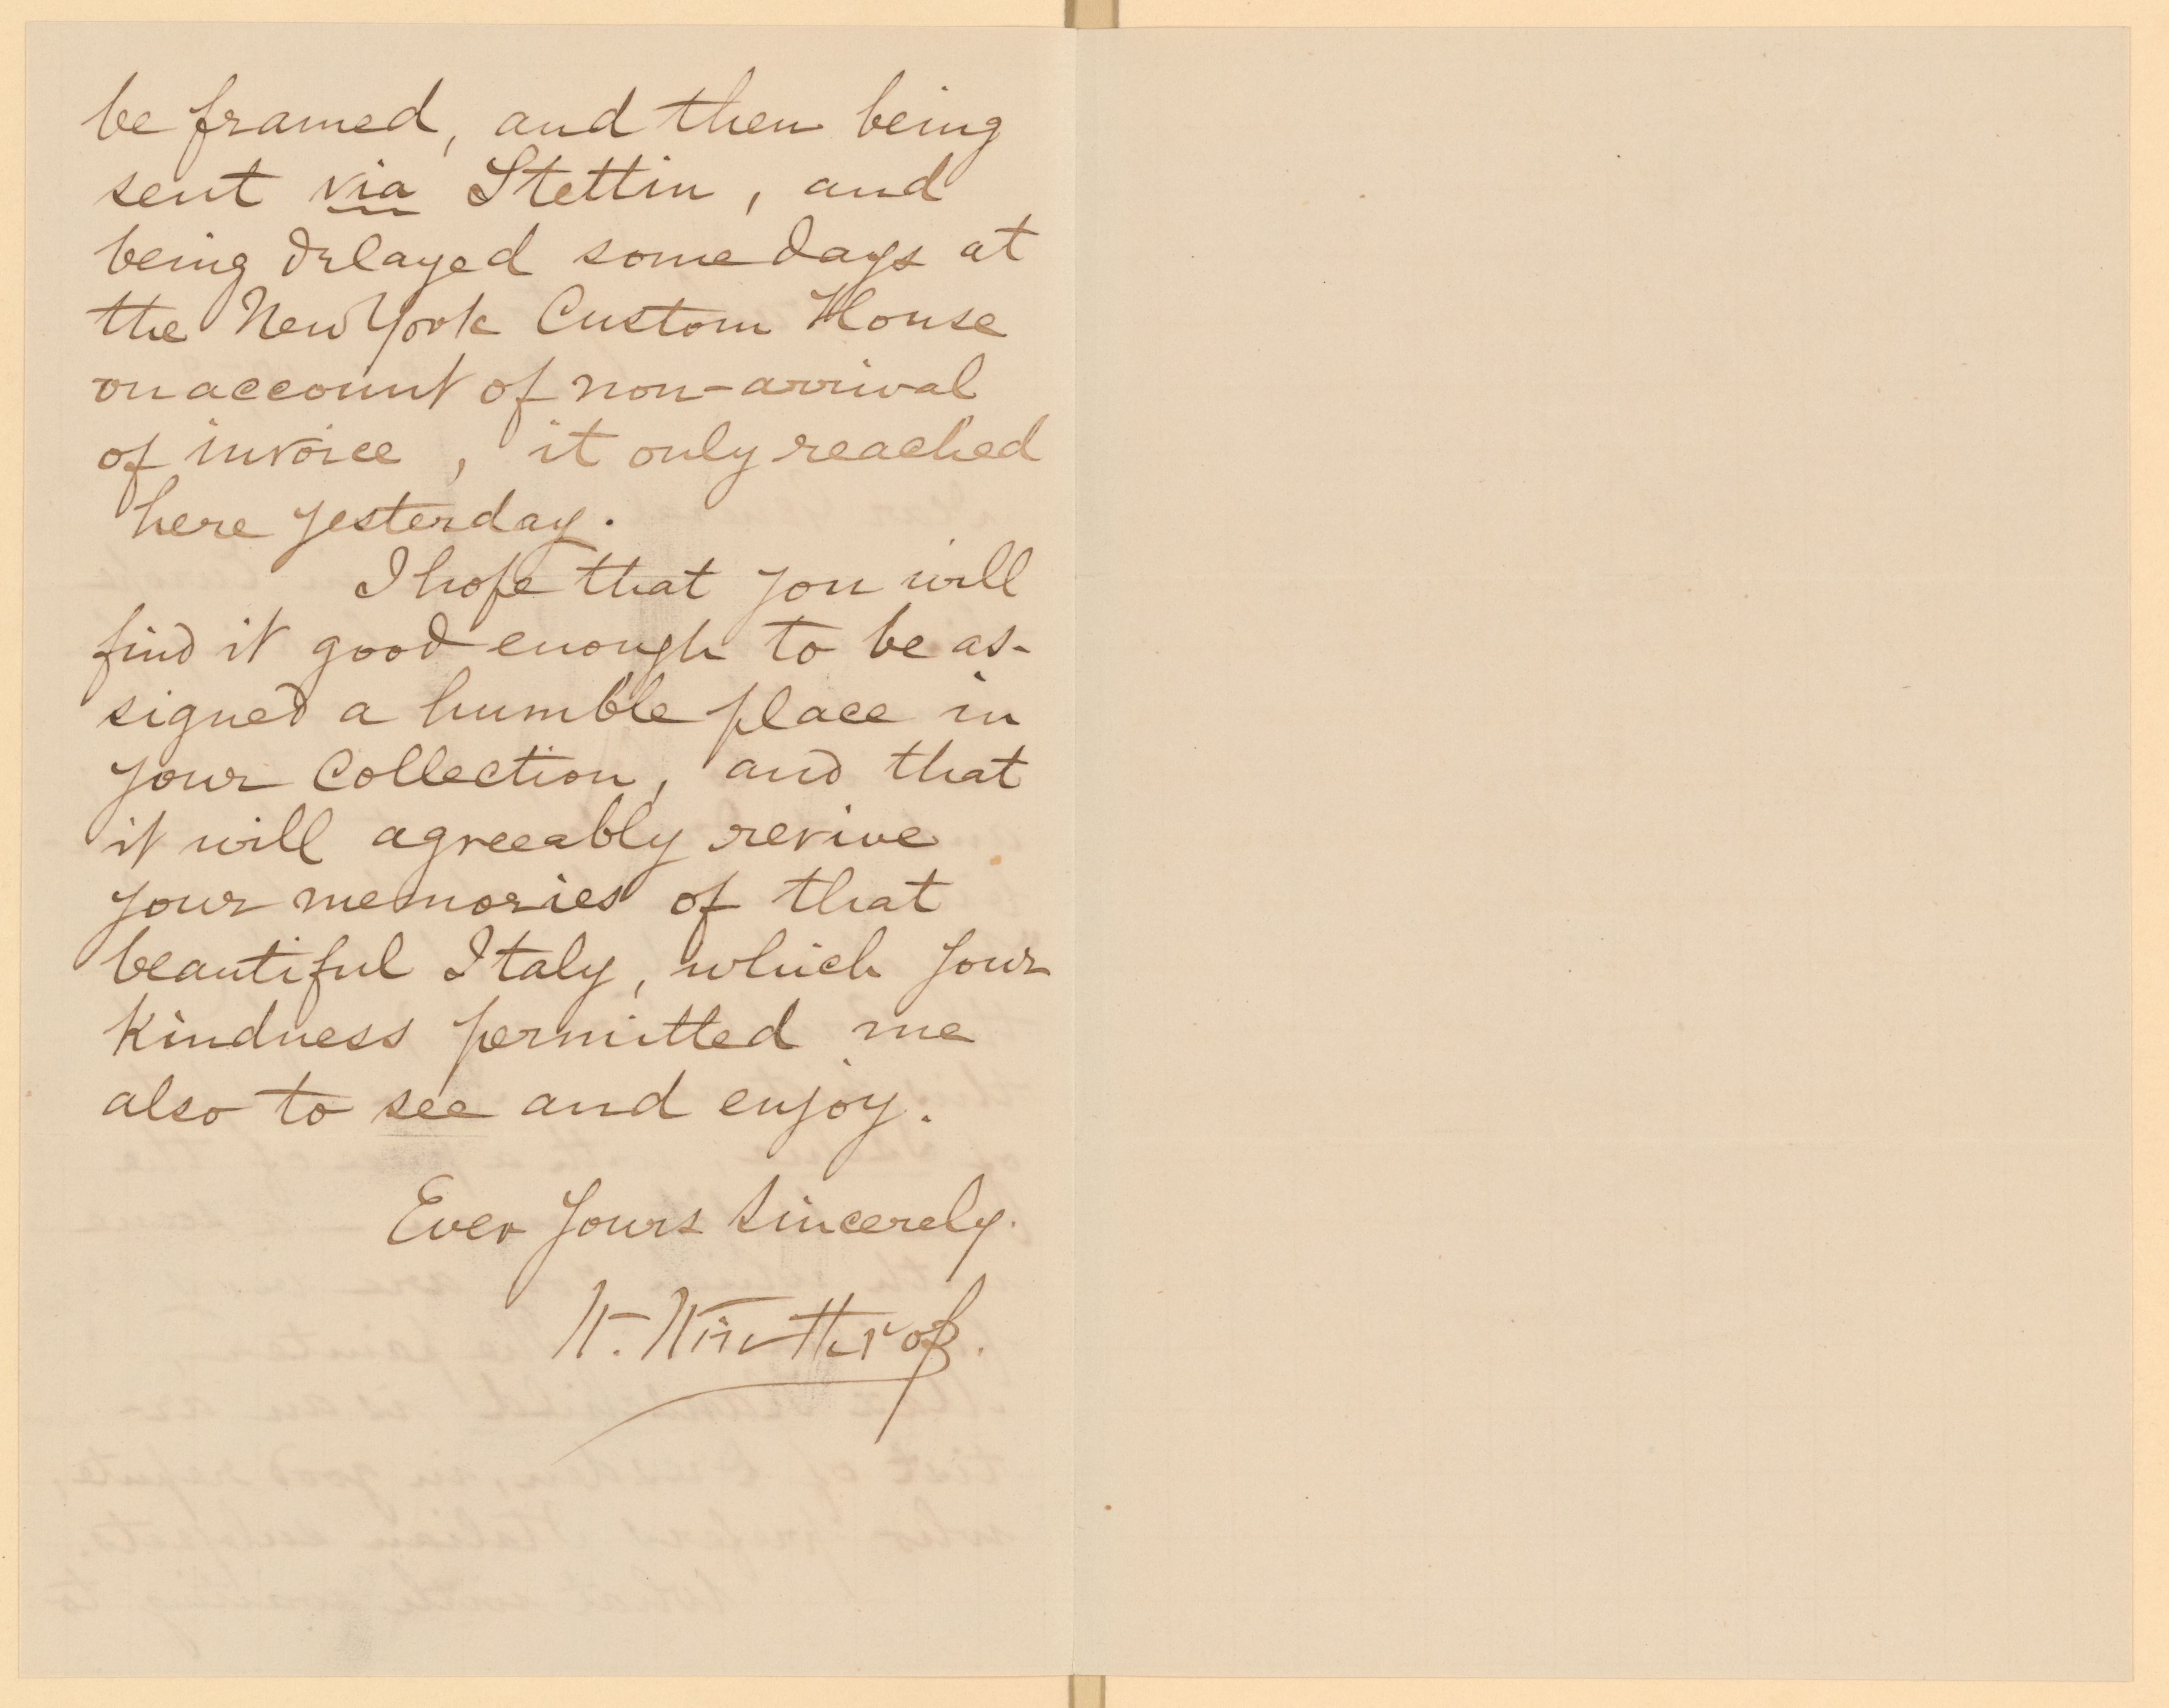 be framed, and then being
sent via Stettin, and
being delayed some days at
the New York Custom House
on account of non-arrival
of invoice, it only reached
here yesterday.
I hope that you will
find it good enough to be as-
signed a humble place in
your Collection, and that
it will agreeably revive
your memories of that
beautiful Italy, which your
kindness permitted me
also to see and enjoy.
Ever Yours Sincerely.
W. Winthrop.